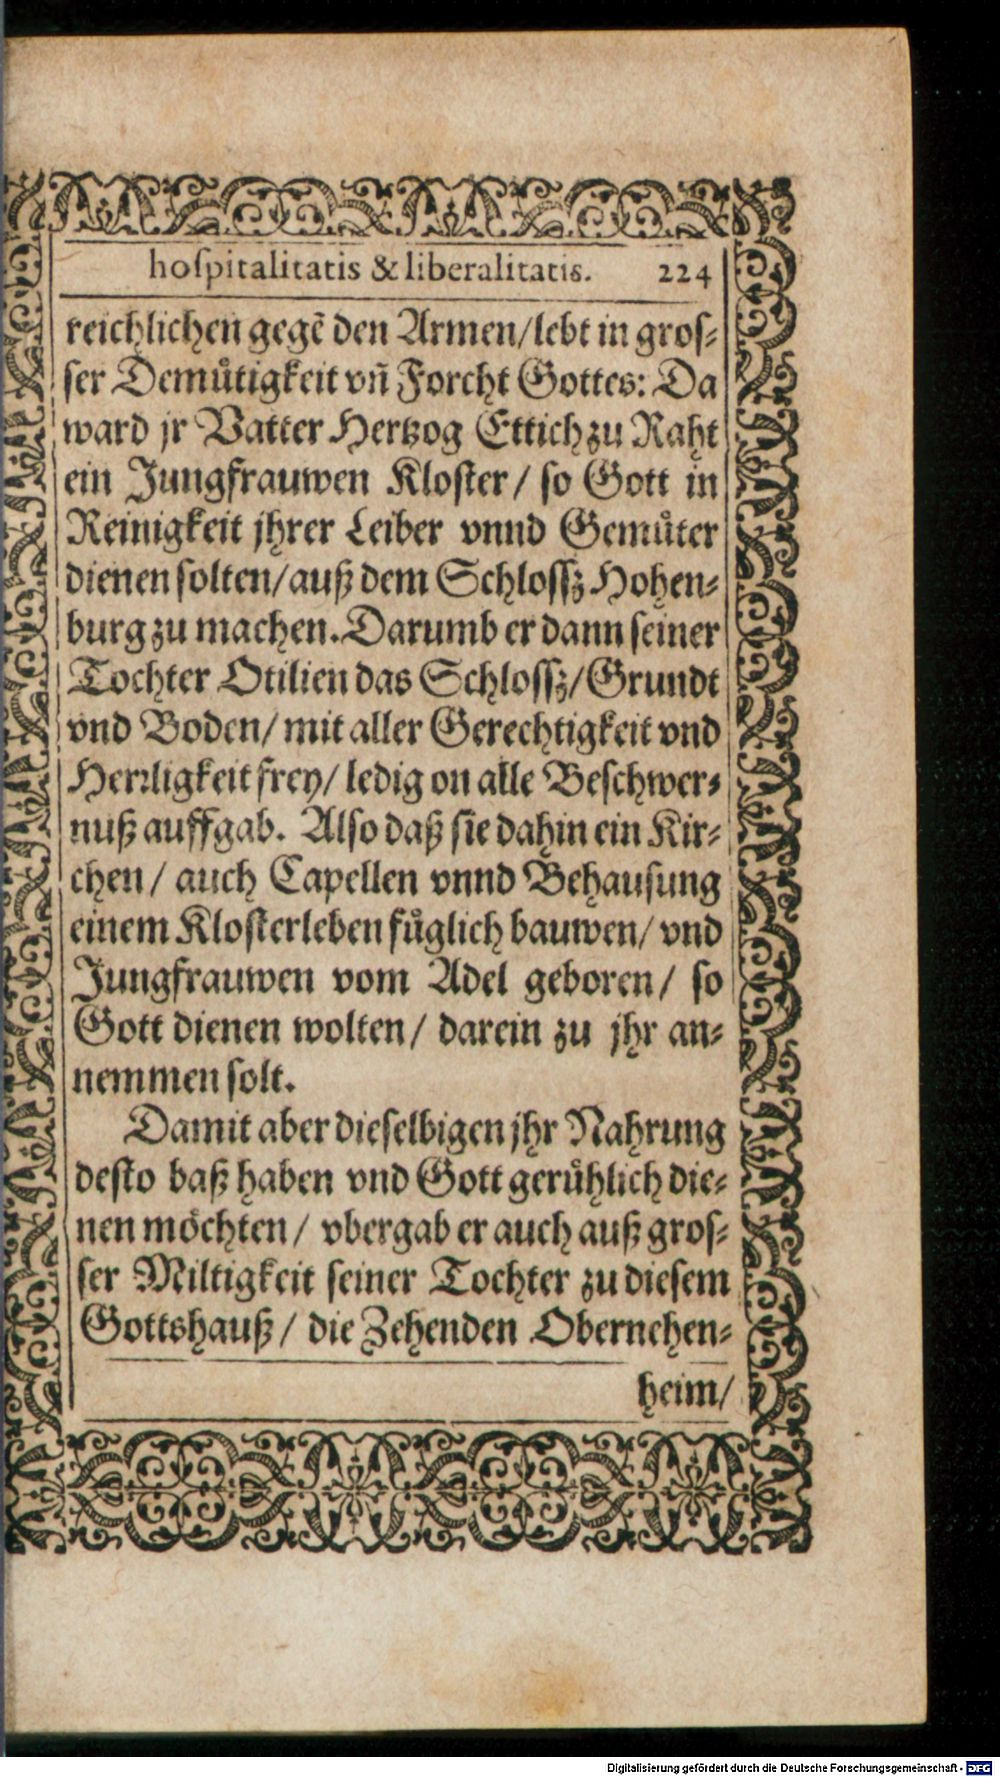 hoſpitalitatis & liberalitatis. 224
reichlichen gegē den Armen/lebt in groſ⸗
ſer Demuͤtigkeit vñ Forcht Gottes: Da
ward jr Vatter Hertzog Ettich zu Raht
ein Jungfrauwen Kloſter/ ſo Gott in
Reinigkeit jhrer Leiber vnnd Gemuͤter
dienen ſolten/auß dem Schloſſz Hohen⸗
burg zu machen. Darumb er dann ſeiner
Tochter Otilien das Schloſſz/Grundt
vnd Boden/ mit aller Gerechtigkeit vnd
Herꝛligkeit frey/ ledig on alle Beſchwer⸗
nuß auffgab. Alſo daß ſie dahin ein Kir⸗
chen/ auch Capellen vnnd Behauſung
einem Kloſterleben fuͤglich bauwen/ vnd
Jungfrauwen vom Adel geboren/ ſo
Gott dienen wolten/ darein zu jhr an⸗
nemmen ſolt.
Damit aber dieſelbigen jhr Nahrung
deſto baß haben vnd Gott geruͤhlich die⸗
nen moͤchten/ vbergab er auch auß groſ⸗
ſer Miltigkeit ſeiner Tochter zu dieſem
Gottshauß/ die Zehenden Obernehen⸗
heim/
Digitalisierung gefördert durch die Deutsche Forschungsgemeinschaft - DFG